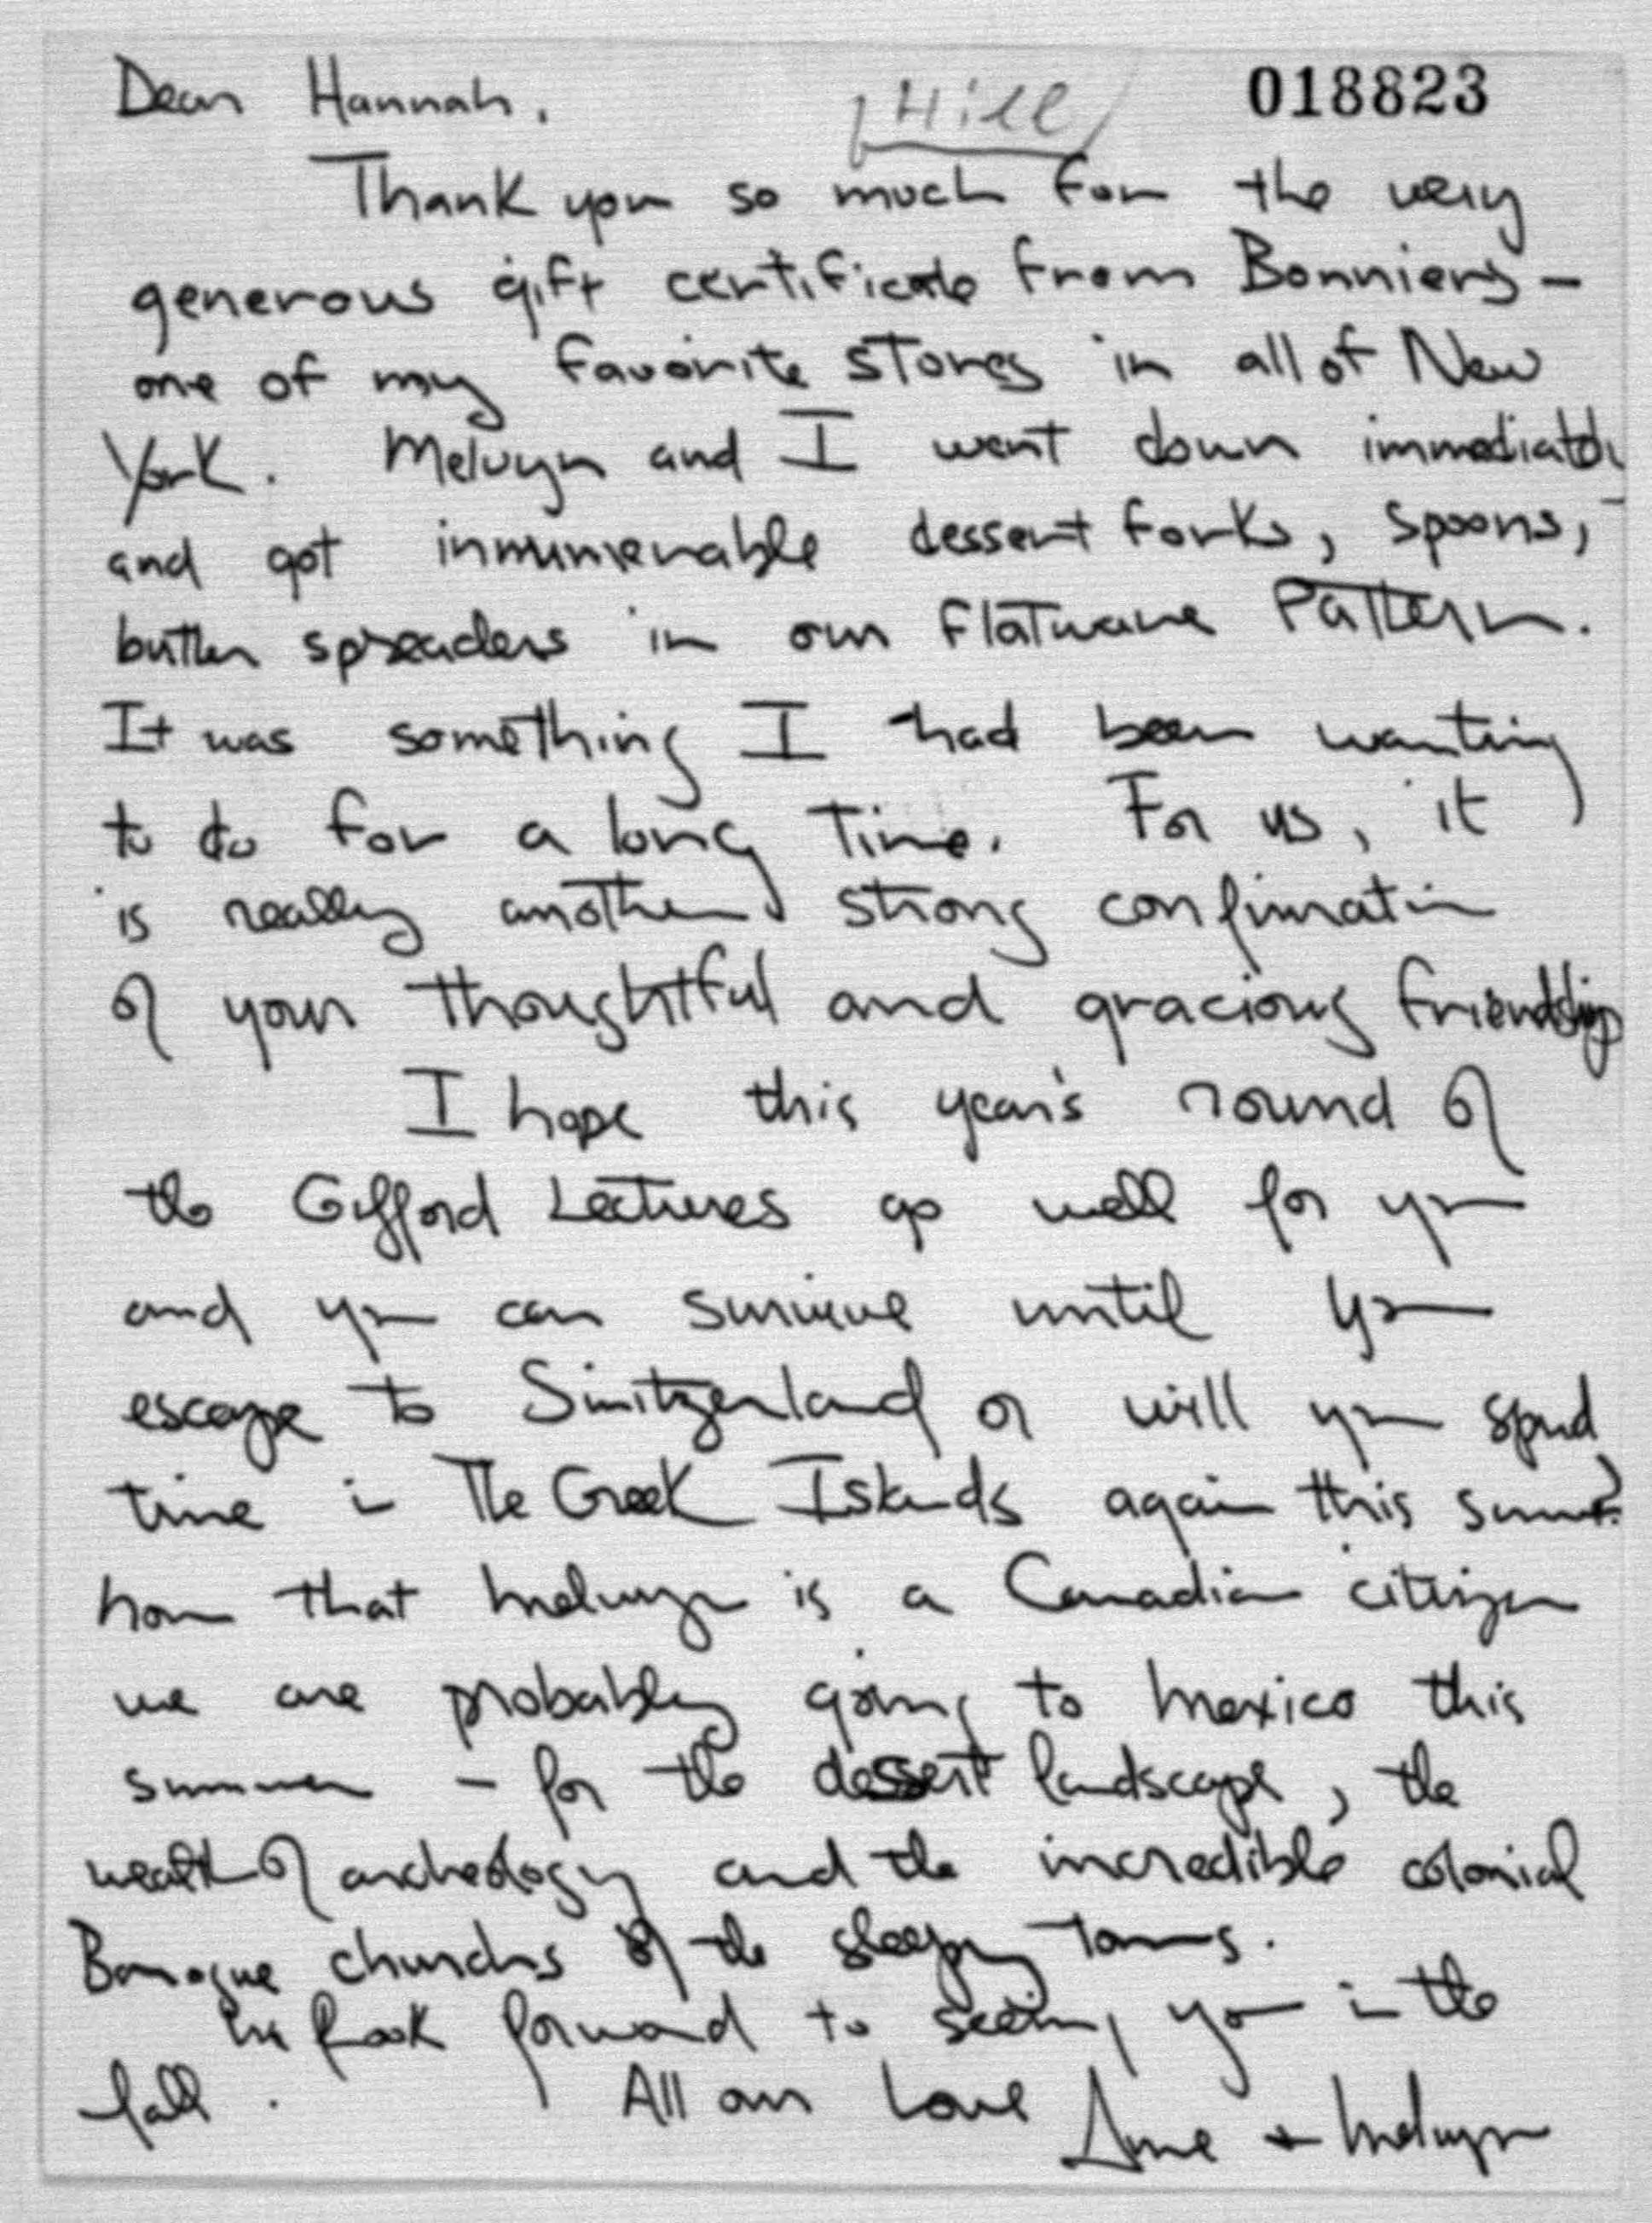 Dear Hannah,
[Hill]
018823
Thank you so much for the very
generous gift certificate from Bonniers –
one of my favorite stores in all of New
York. Melvyn and I went down immediately
and got innumerable dessert forks, spoons,
butter spreaders in our flatware Pattern.
It was something I had been wanting
to do for a long time. For us, it
is really another strong confirmation
of your thoughtful and gracious friendship
I hope this year's round of
the Gifford Lectures go well for you
and you can survive until you
escape to Switzerland or will you spend
time in The Greek Islands again this summer?
Now that Melvyn is a Canadian citizen
we are probably going to Mexico this
summer – for the dessert landscape, the
wealth of archeology and the incredible colonial
Baroque churches of the sleepy towns.
We look forward to seeing you in the
fall. All our Love
Anne + Melvyn